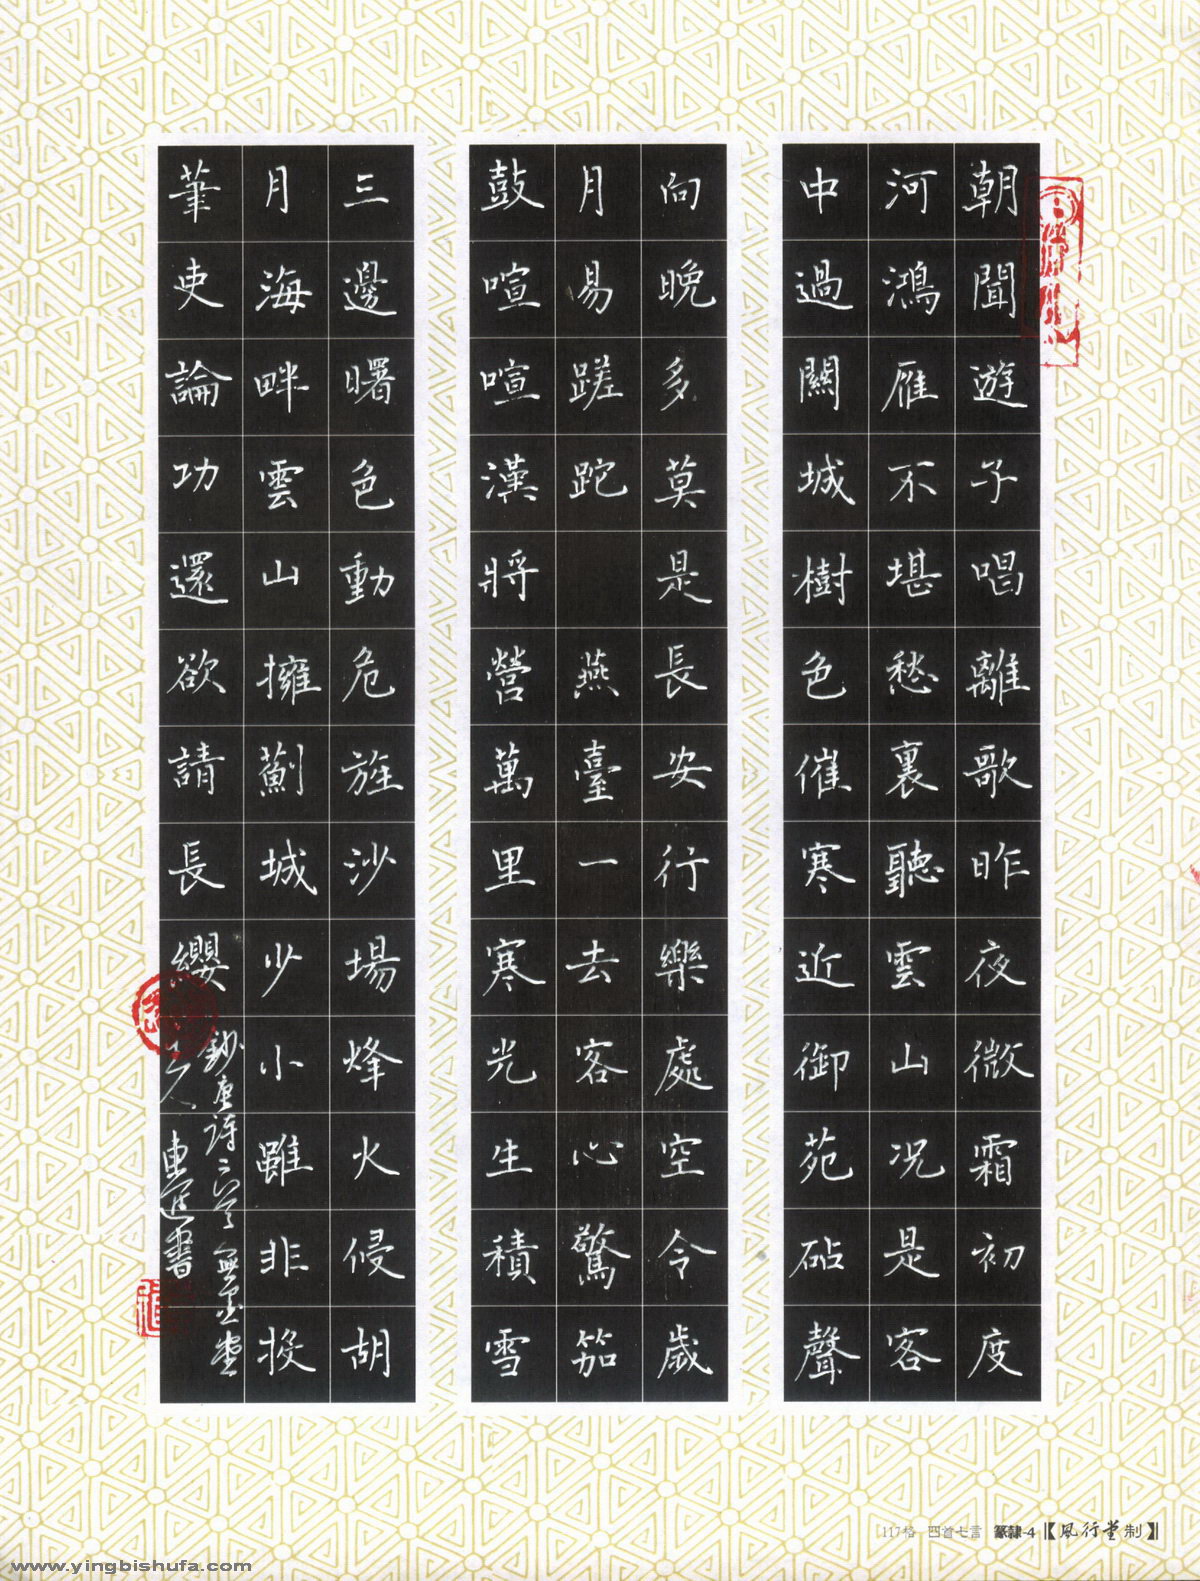 朝聞遊子唱離歌昨夜微霜初度
河鴻雁不堪愁裏聽雲山况是客
中過關城樹色催寒近御苑砧聲
向晚多莫是長安行樂處空令歲
月易蹉跎 燕臺一去客心驚笳
鼓喧喧漢將營萬里寒光生積雪
三邊曙色動危旌沙場烽火侵胡
月海畔雲山擁薊城少小雖非投
筆吏論功還欲請長纓
鈔唐詩二首
書
117格 四首七言 篆隸-4【風行堂制】
www.yingbishufa.com